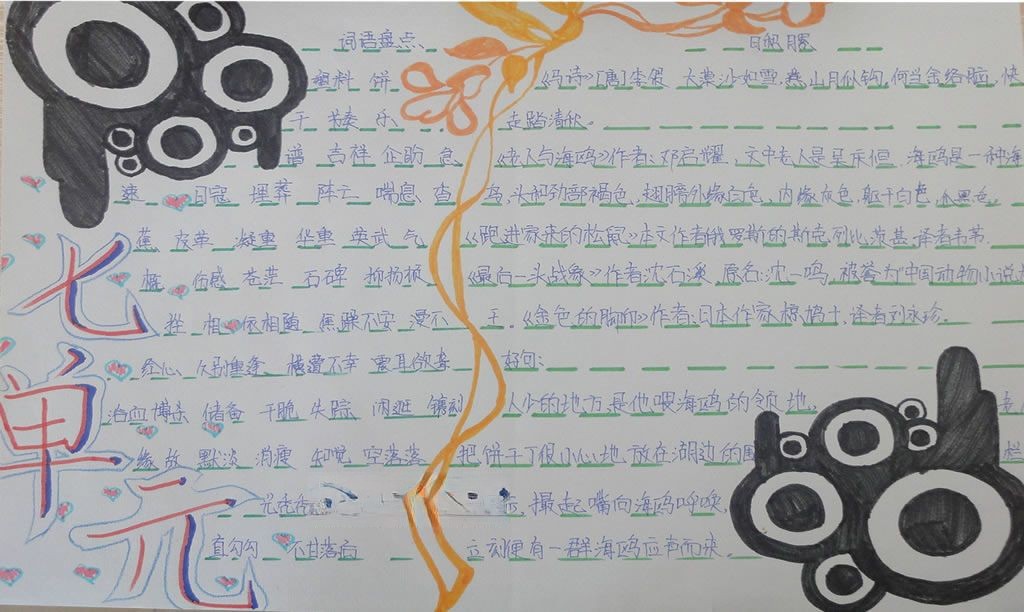 七单元
词语盘点、
塑料 饼
干 节奏 乐
谱 吉祥 企盼 急
速 日寇 埋葬 阵亡 喘息
蕉 皮革 凝重 华重 英武 气
概 伤感 苍茫 石碑 抑扬顿
挫 相依相随 焦躁不安 漫不
经心、久别重逢、横遭不幸 震耳欲聋
泊血 搏杀 储备 干脆 失踪 闲逛 镌刻
缘故 黯淡 消瘦 知觉 空落落
光秃秃
直勾勾 不甘落后
日积月累
《马诗》[唐]李贺 大漠沙如雪,燕山月似钩,何当金络脑,快
走踏清秋。
《老人与海鸥》作者:邓启耀,文中老人是吴庆恒 海鸥是一种海
鸟,头部颈部褐色,翅膀外缘白色,内缘灰色,躯干白色,爪黑色,
《跑进家来的松鼠》本文作者俄罗斯的斯克列比茨基 译者韦苇.
《最后一头战象》作者沈石溪 原名:沈一鸣,被誉为"中国动物小说大
王。《金色的脚印》作者:日本作家椋鸠十,译者刘永珍.
好句:
人少的地方,是他喂海鸥的领地。
把饼干丁很小心地放在湖边的围 栏
撮起嘴向海鸥呼唤,
立刻便有一群海鸥应声而来。